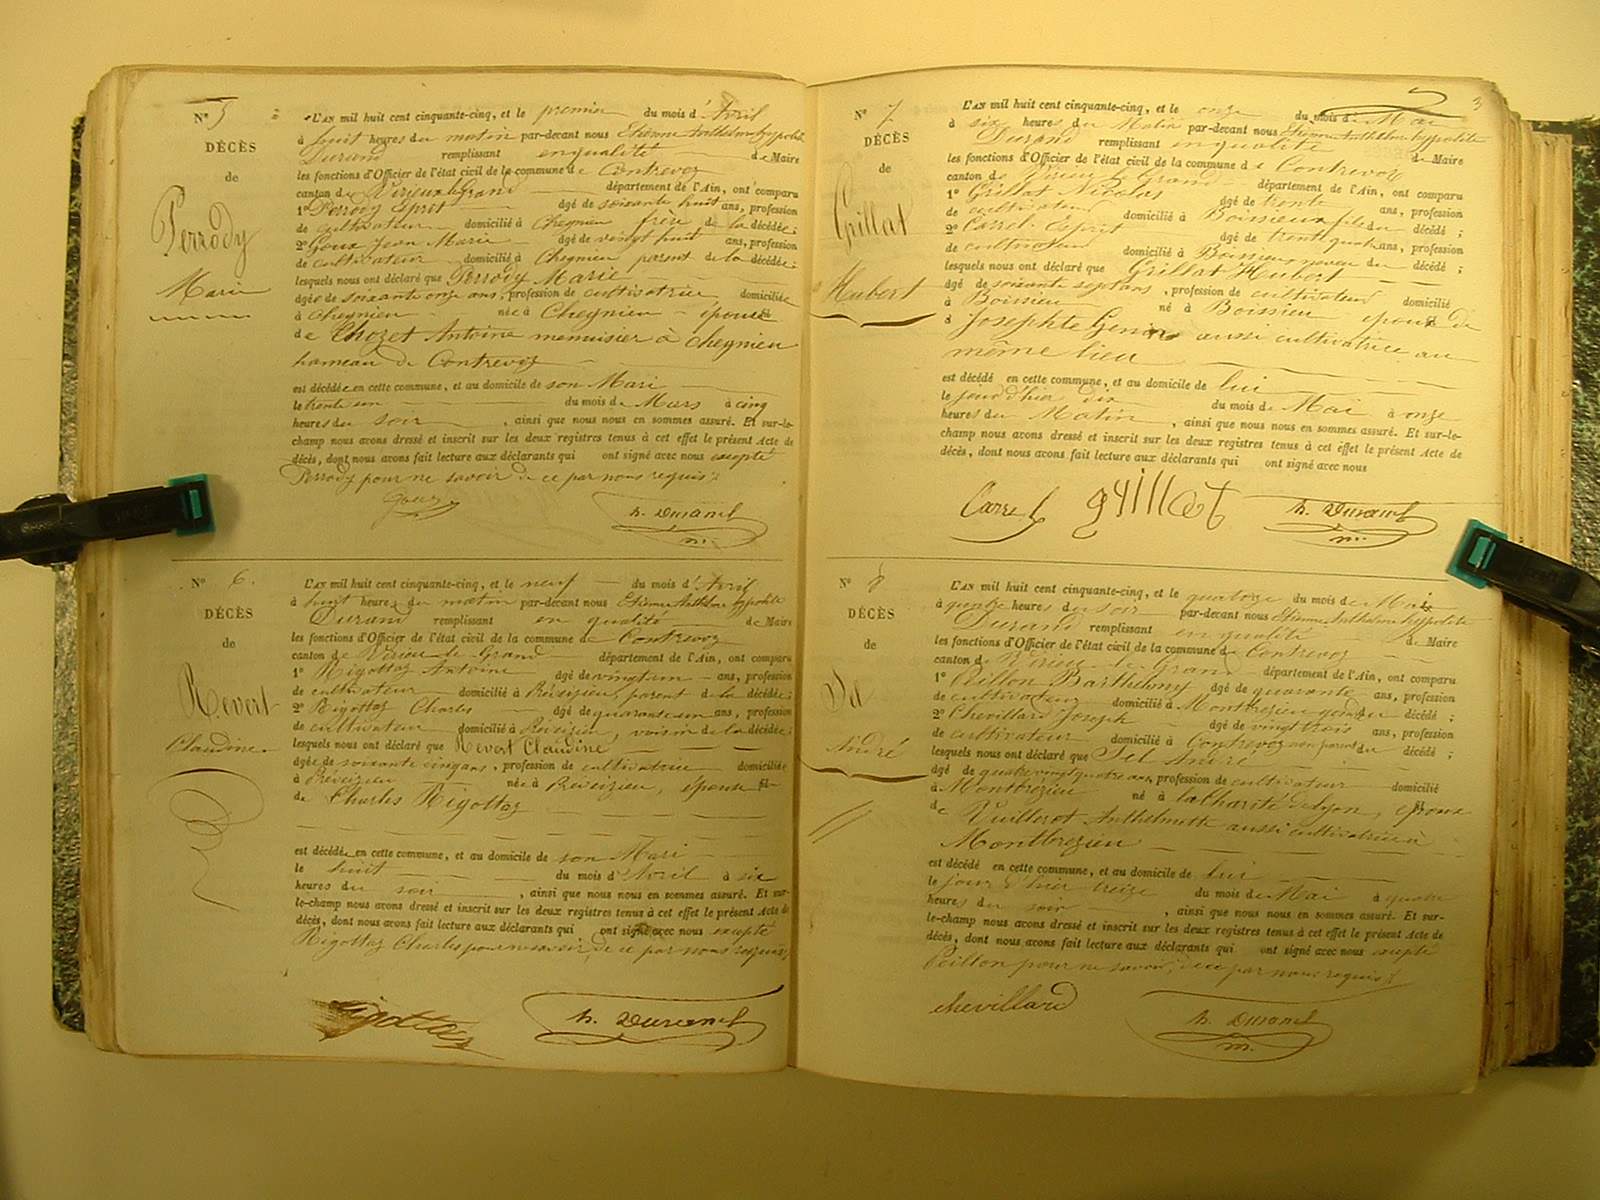 Nº 5
DÉCÈS
de
Perrody
Marie
L'AN mil huit cent cinquante-cinq, et le premier du mois d'Avril
à huit heures du matin par-devant nous Etienne Anthelme hyppolite
Durand remplissant en qualité de Maire
les fonctions d'Officier de l'état civil de la commune de Contrevoz
canton de Virieu le Grand département de l'Ain, ont comparu
1º Perrody Esprit âgé de soixante huit ans, profession
de cultivateur domicilié à Chegnieu frère de la décédée;
2º Goux Jean Marie âgé de vingt huit ans, profession
de cultivateur domicilié à Chegnieu parent de la décédée;
lesquels nous ont déclaré que Perrody Marie
âgée de soixante onze ans, profession de cultivatrice, domiciliée
à Chegnieu née à Chegnieu épouse
de Chozet Antoine menuisier à chegnieu
hameau de Contrevoz
est décédée en cette commune, et au domicile de son Mari
le trente un du mois de Mars à cinq
heures du soir, ainsi que nous nous en sommes assuré. Et sur-le-
champ nous avons dressé et inscrit sur les deux registres tenus à cet effet le présent Acte de
décès, dont nous avons fait lecture aux déclarants qui ont signé avec nous excepté
Perrody pour ne savoir de ce par nous requis
Goux h. Durand
m.
Nº 6.
DÉCÈS
de
Revert
Claudine
L'AN mil huit cent cinquante-cinq, et le neuf du mois d'Avril
à huit heures du matin par-devant nous Etienne Anthelme hyppolite
Durand remplissant en qualité de Maire
les fonctions d'Officier de l'état civil de la commune de Contrevoz
canton de Virieu le Grand département de l'Ain, ont comparu
1º Rigottaz Antoine âgé de vingt un ans, profession
de cultivateur domicilié à Préveizieu, parent de la décédée;
2º Rigottaz Charles âgé de quarante un ans, profession
de cultivateur domicilié à Préveizieu, voisin de la décédée;
lesquels nous ont déclaré que Revert Claudine
âgée de soixante cinq ans, profession de cultivatrice domiciliée
à Préveizieu née à Préveizieu, épouse
de Charles Rigottaz
est décédée en cette commune, et au domicile de son Mari
le huit du mois d'Avril à six
heures du soir, ainsi que nous nous en sommes assuré. Et sur-
le-champ nous avons dressé et inscrit sur les deux registres tenus à cet effet le présent Acte de
décès, dont nous avons fait lecture aux déclarants qui ont signé avec nous excepté
Rigottaz Charles pour ne savoir, de ce par nous requis,
Rigottaz h. Durand
3
Nº 7
DÉCÈS
de
Grillat
Hubert
L'AN mil huit cent cinquante-cinq, et le onze du mois de Mai
à six heures du Matin par-devant nous Etienne Anthelme hyppolite
Durand remplissant en qualité de Maire
les fonctions d'Officier de l'état civil de la commune de Contrevoz
canton de Virieu le Grand département de l'Ain, ont comparu
1º Grillat Nicolas âgé de trente ans, profession
de cultivateur domicilié à Boissieu fils du décédé;
2º Carrel Esprit âgé de trente quatre ans, profession
de cultivateur domicilié à Boissieu neveu du décédé;
lesquels nous ont déclaré que Grillat Hubert
âgé de soixante sept ans, profession de cultivateur domicilié
à Boissieu né à Boissieu époux de
à Josephte Genin aussi cultivatrice au
même lieu
est décédé en cette commune, et au domicile de lui
le jour d'hier dix du mois de Mai à onze
heures du Matin, ainsi que nous nous en sommes assuré. Et sur-le-
champ nous avons dressé et inscrit sur les deux registres tenus à cet effet le présent Acte de
décès, dont nous avons fait lecture aux déclarants qui ont signé avec nous
Carrel grillat h. Durand
m.
Nº 8
DÉCÈS
de
André
L'AN mil huit cent cinquante-cinq, et le quatorze du mois de Mai
à quatre heures du soir par-devant nous Etienne Anthelme hyppolite
Durand remplissant en qualité de Maire
les fonctions d'Officier de l'état civil de la commune de Contrevoz
canton de Virieu le Grand département de l'Ain, ont comparu
1º Peillon Barthelemy âgé de quarante ans, profession
de cultivateur domicilié à Montbrezieu gendre du décédé;
2º Chevillard Joseph âgé de vingt trois ans, profession
de cultivateur domicilié à Contrevoz non parent du décédé;
lesquels nous ont déclaré que André
âgé de quatre vingt quatre ans, profession de cultivateur domicilié
à Montbrezieu né à la Charité de Lyon, époux
de Vuillerot Anthelmette aussi cultivatrice à
Montbrezieu
est décédé en cette commune, et au domicile de lui
le jour d'hier treize du mois de Mai à quatre
heures du soir, ainsi que nous nous en sommes assuré. Et sur-
le-champ nous avons dressé et inscrit sur les deux registres tenus à cet effet le présent Acte de
décès, dont nous avons fait lecture aux déclarants qui ont signé avec nous excepté
Peillon pour ne savoir, de ce par nous requis
chevillard h. Durand
m.